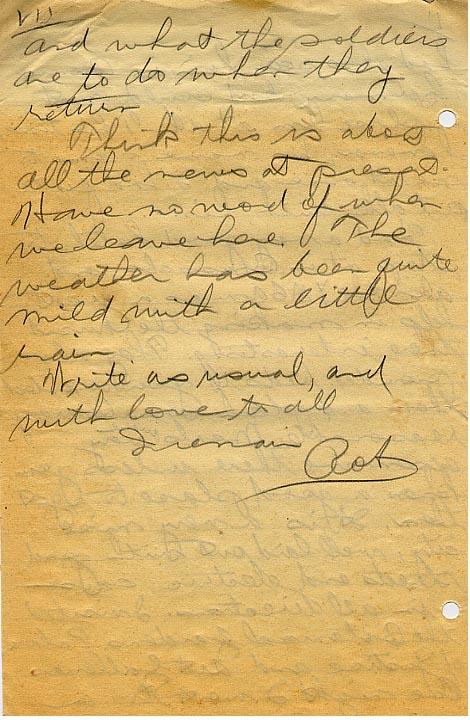 VII
and what the soldiers
are to do when they
return
Think this is about
all the news at present.
Have no word of when
we leave here. The
weather has been quite
mild with a little
rain
Write as usual, and
with love to all
I remain